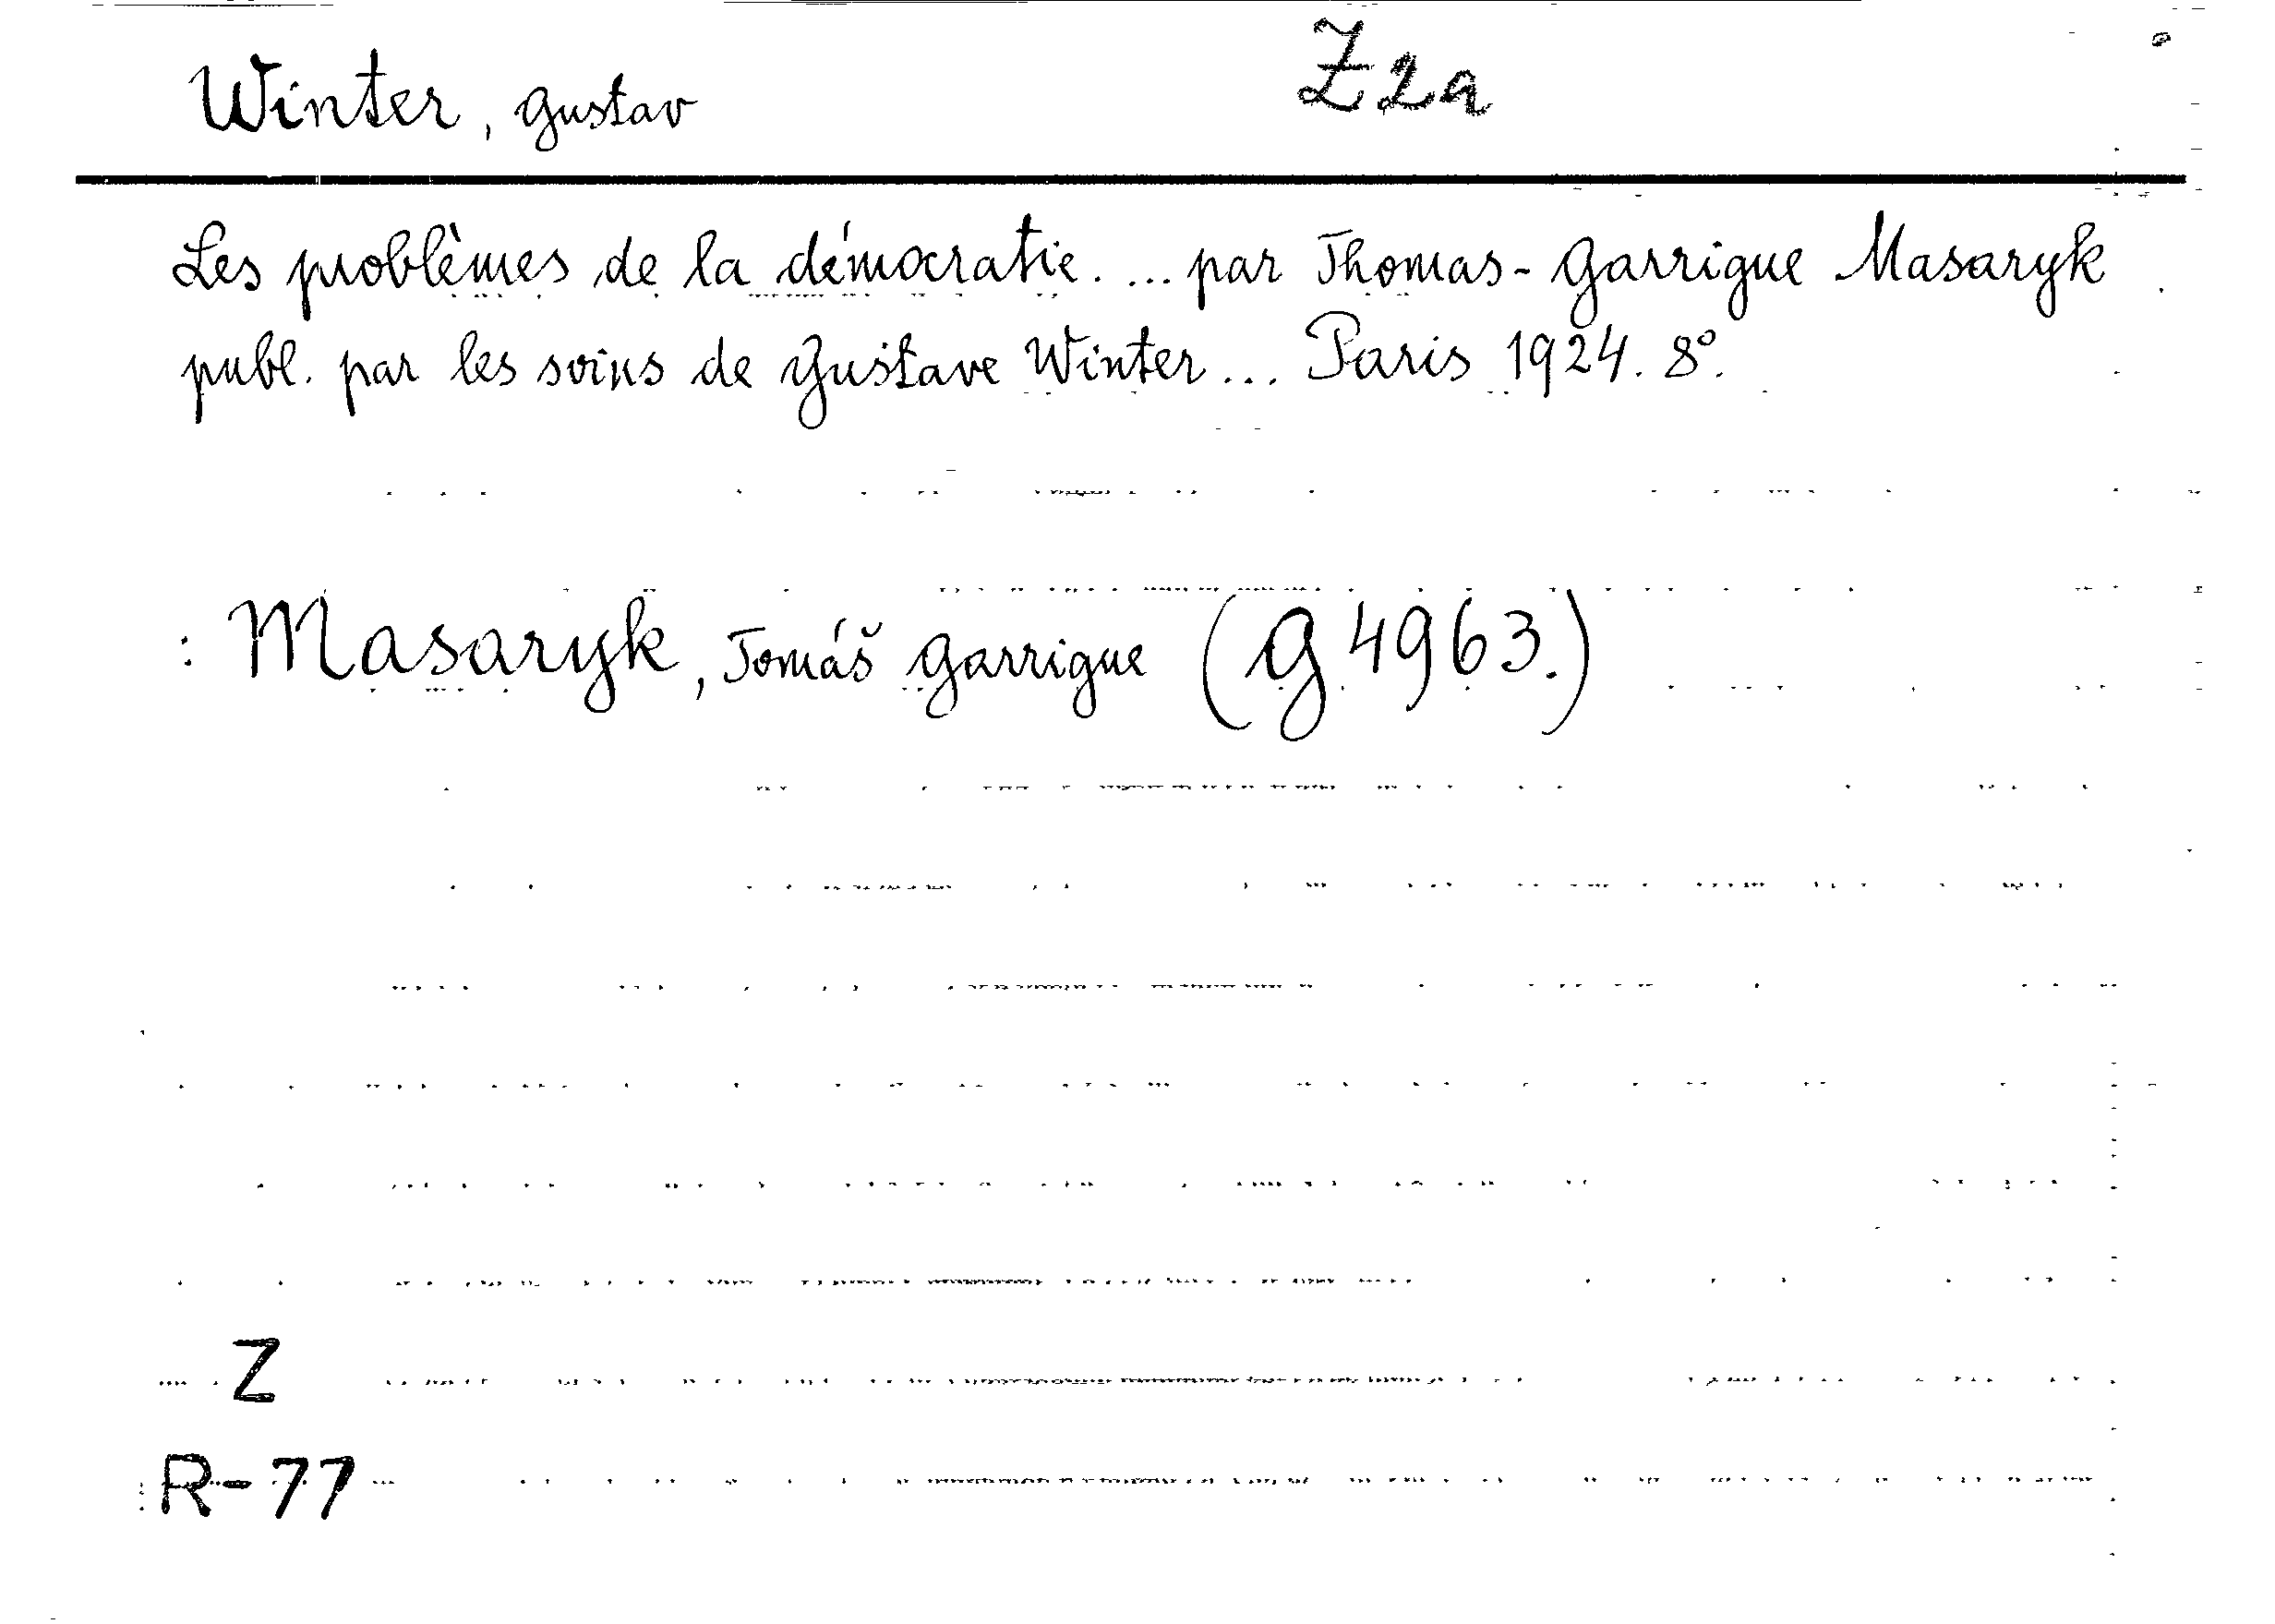 Winter, Gustav Z2a
Les problèmes de la démocratie. ... par Thomas-Garrigue Masaryk
publ. par les soins de Gustave Winter... Paris 1924. 8°.
: Masaryk, Tomáš Garrigue (G 4963.)
Z
R-77